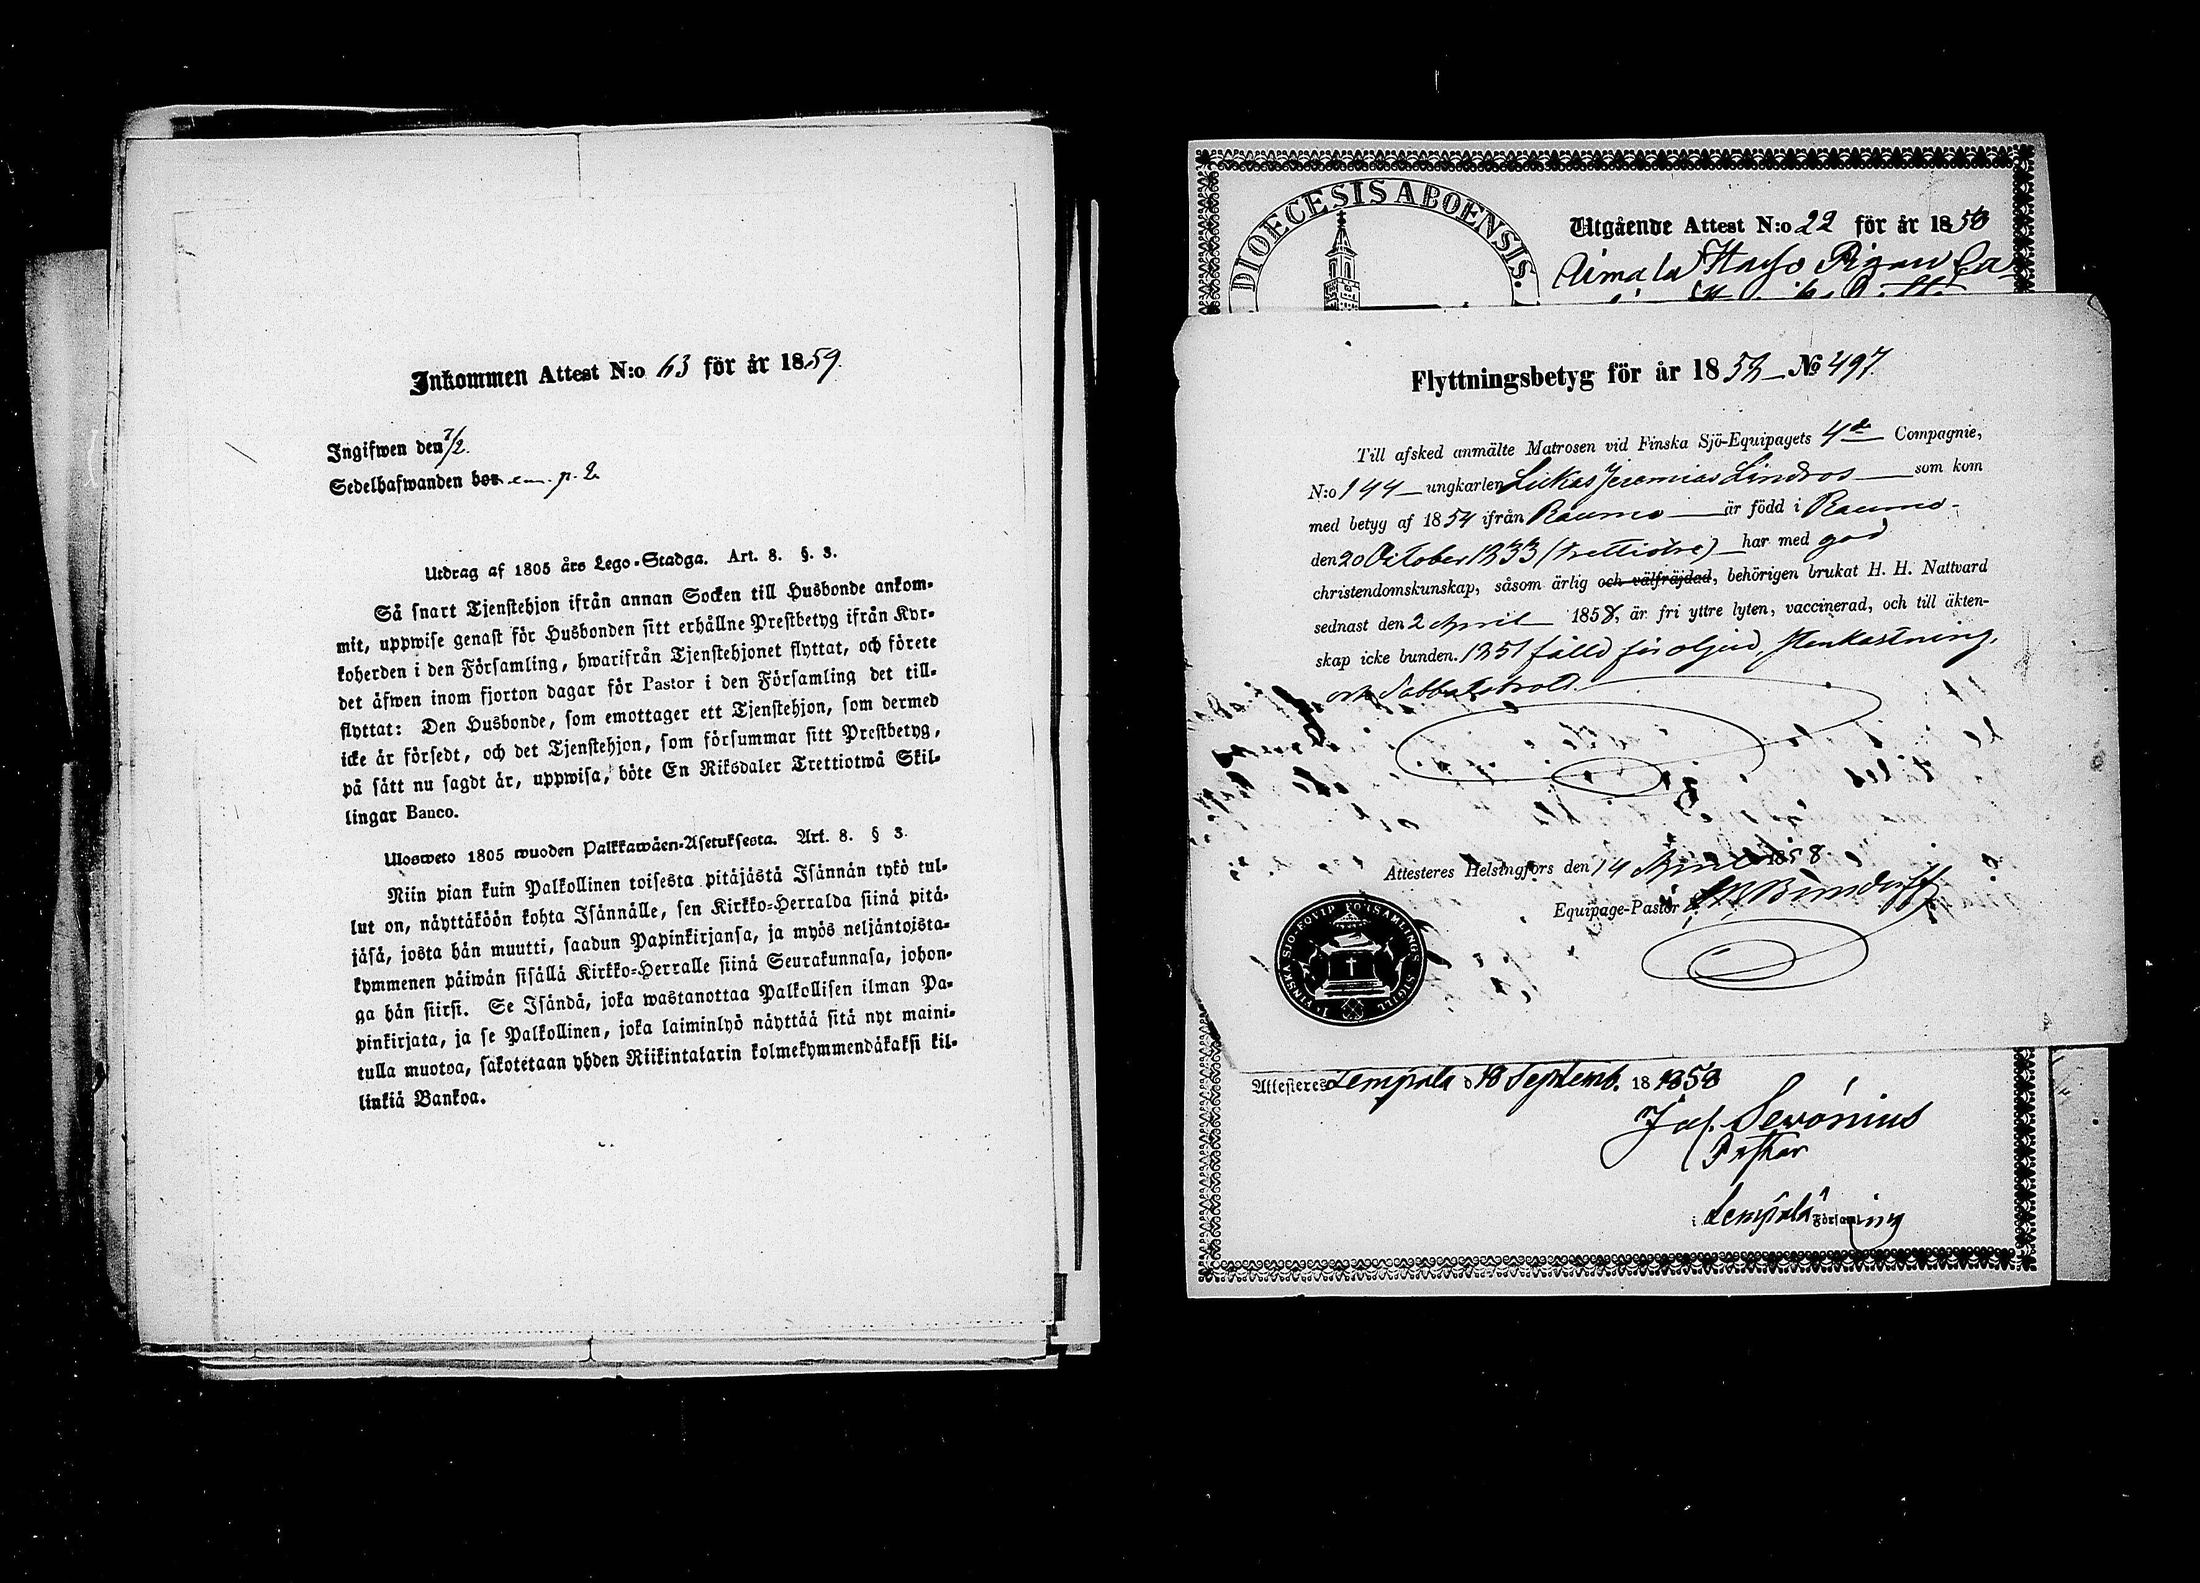 Inkommen Attest N:o 63 för år 1859.
Ingifwen den 7/2.
Sedelhafwanden bor em. p. 2
Utdrag af 1805 års Lego-Stadga. Art. 8. §. 3.
Så snart Tjenstehjon ifrån annan Socken till Husbonde ankom-
mit, uppwise genast för Husbonden sitt erhållne Prestbetyg ifrån Kyr-
koherden i den Församling, hwarifrån Tjenstehjonet flyttat, och förete
det äfwen inom fjorton dagar för Pastor i den Församling det till-
flyttat: Den Husbonde, som emottager ett Tjenstehjon, som dermed
icke är försedt, och det Tjenstehjon, som försummar sitt Prestbetyg,
på sätt nu sagdt är, uppwisa, böte En Riksdaler Trettiotwå Skil-
lingar Banco.
Ulosweto 1805 wuoden Palkkawäen-Asetuksesta. Art. 8. § 3.
Niin pian kuin Palkollinen toisesta pitäjästä Isännän tykö tul-
lut on, näyttäköön kohta Isännälle, sen Kirkko-Herralda siinä pitä-
jäsä, josta hän muutti, saadun Papinkirjansa, ja myös neljäntoista-
kymmenen päiwän sisällä Kirkko-Herralle siinä Seurakunnasa, johon-
ga hän siirsi. Se Isändä, joka wastanottaa Palkollisen ilman Pa-
pinkirjata, ja se Palkollinen, joka laiminlyö näyttää sitä nyt maini-
tulla muotoa, sakotetaan yhden Riikintalarin kolmekymmendäkaksi kil-
linkiä Bankoa.
DIOECESIS ABOENSIS.
Utgående Attest N:o 22 för år 1858
Uimala Pigan Ca
Flyttningsbetyg för år 1858 No 497
Till afsked anmälte Matrosen vid Finska Sjö-Equipagets 4de Compagnie,
N:o 144 ungkarlen Lukas Jeremias Lindros som kom
med betyg af 1854 ifrån Raumo är född i Raumo
den 20 October 1833 (trettiotre) har med god
christendomskunskap, såsom ärlig och välfräjdad, behörigen brukat H. H. Nattvard
sednast den 2 April 1858, är fri yttre lyten, vaccinerad, och till äkten-
skap icke bunden. 1851 fälld för oljud, stenkastning,
och Sabbatsbrott.
Attesteres Helsingfors den 14 April 1858.
Equipage-Pastor
FINSKA SJÖ-EQVIP. FÖRSAMLINGS SIGILL
Attesteres Lempälä d 18 Septemb. 18 1858
Jas. Sevonius
Pastor
i Lempälä Församling